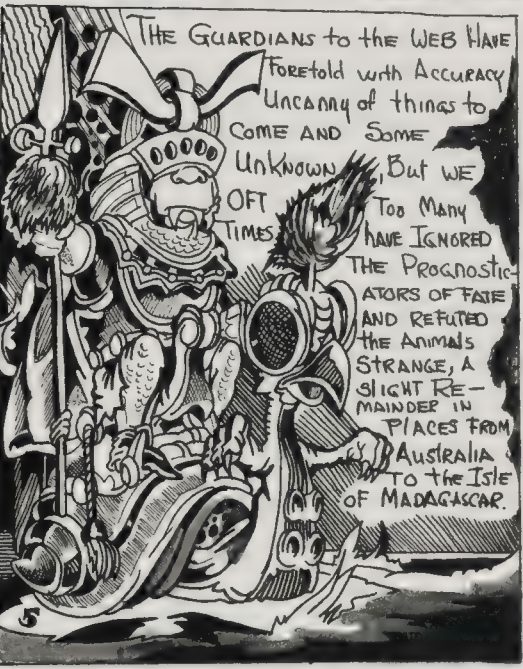 THE GUARDIANS to the WEB HAVE
Foretold with ACCURACY
Uncanny of things to
COME AND SOME
UNKNOWN, But WE
OFT Too Many
TIMES have IGNORED
THE PROGNOSTIC-
ATORS OF FATE
AND REFUTED
the ANIMALS
STRANGE, A
SLIGHT RE-
MAINDER IN
PLACES FROM
AUSTRALIA
TO the ISLE
OF MADAGASCAR.
5